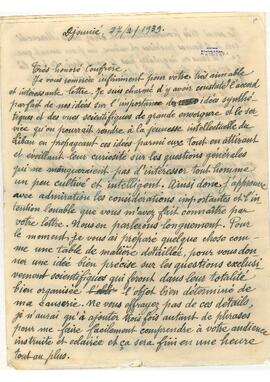 Djounié, 27/2/1929.
Très honoré Confrère,
Je vous remercie infiniment pour votre très aimable
et intéressante lettre. Je suis charmé d'y avoir constaté l'accord
parfait de nos idées sur l'importance des idées synthé-
tiques et des vues scientifiques de grande envergure et le ser-
vice qu'on pourrait rendre à la jeunesse intellectuelle du
Liban en propageant ces idées parmi eux tout en attirant et
éveillant leur curiosité sur les questions générales
qui ne manqueraient pas d'intéresser tout homme
un peu cultivé et intelligent. Ainsi donc j'approuve
avec admiration les considérations importantes et l'in
tention louable que vous m'avez fait connaître par
votre lettre. Nous en parlerons longuement. Pour
le moment, je vous ai préparé quelque chose com
me une table de matière détaillée, pour vous don
ner une idée bien précise sur les questions exclusi
vement scientifiques qui feront dans leur totalité
bien organisée l'objet bien déterminé de
ma causerie. Ne vous effrayez pas de ces détails,
je n'aurai qu'à ajouter trois fois autant de phrases
pour me faire facilement comprendre à votre audience
instruite et éclairée et ça sera fini en une heure
tout au plus.